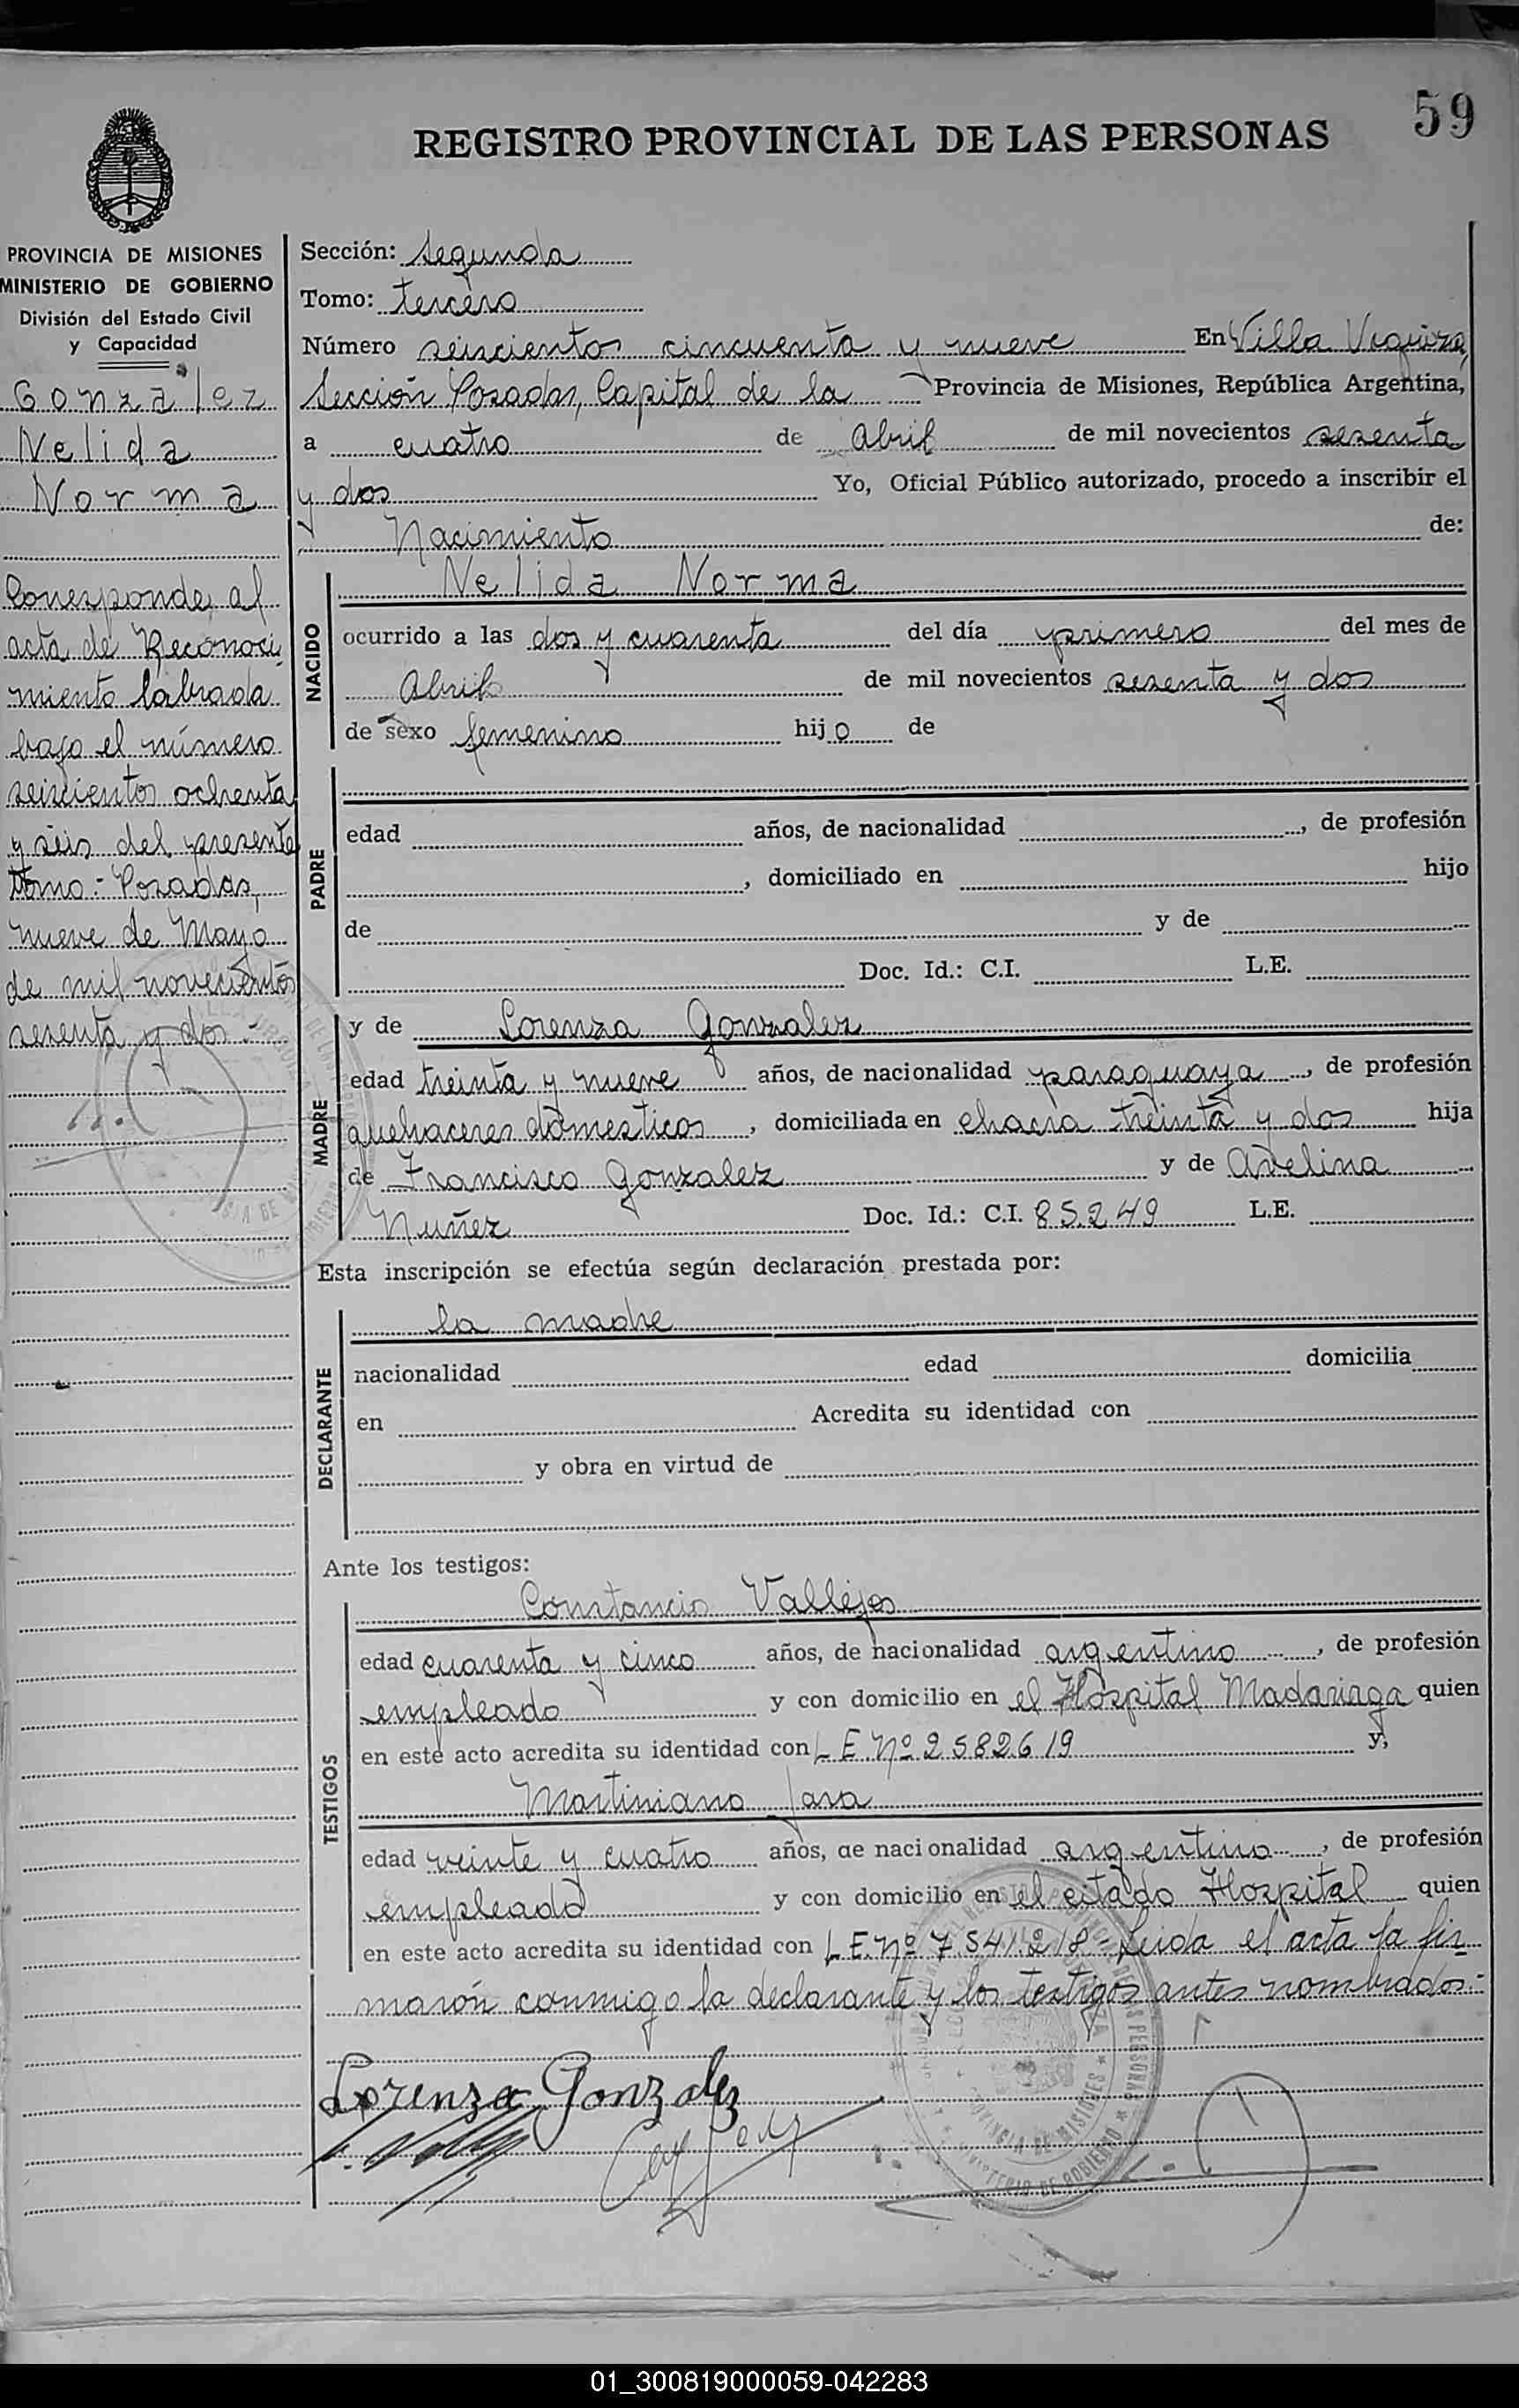 59
REGISTRO PROVINCIAL DE LAS PERSONAS
PROVINCIA DE MISIONES
MINISTERIO DE GOBIERNO
División del Estado Civil
y Capacidad
Gonzalez
Nelida
Norma
Corresponde al
acta de Reconoci
miento labrada
bajo el número
seiscientos ochenta
y seis del presente
tomo.- Posadas,
nueve de Mayo
de mil novecientos
sesenta y dos.-
Sección: Segunda
Tomo: tercero
Número seiscientos cincuenta y nueve En Villa Urquiza,
Sección Posadas, Capital de la Provincia de Misiones, República Argentina,
a cuatro de Abril de mil novecientos sesenta
y dos Yo, Oficial Público autorizado, procedo a inscribir el
Nacimiento de:
NACIDO
Nelida Norma
ocurrido a las dos y cuarenta del día primero del mes de
Abril de mil novecientos sesenta y dos
de sexo femenino hijo de
PADRE
edad años, de nacionalidad , de profesión
, domiciliado en hijo
de y de
Doc. Id.: C.I. L.E.
MADRE
y de Lorenza Gonzalez
edad treinta y nueve años, de nacionalidad paraguaya , de profesión
quehaceres domesticos , domiciliada en chacra treinta y dos hija
de Francisco Gonzalez y de Avelina
Nuñez Doc. Id.: C.I. 85.249 L.E.
Esta inscripción se efectúa según declaración prestada por:
DECLARANTE
la madre
nacionalidad edad domicilia
en Acredita su identidad con
y obra en virtud de
Ante los testigos:
TESTIGOS
Constancio Vallejos
edad cuarenta y cinco años, de nacionalidad argentino , de profesión
empleado y con domicilio en el Hospital Madariaga quien
en este acto acredita su identidad con L E. Nº 2.582.619 y,
Martiniano Jara
edad veinte y cuatro años, de nacionalidad argentino , de profesión
empleado y con domicilio en el citado Hospital quien
en este acto acredita su identidad con L E. Nº 7.541.218= Leida el acta la fir
marón conmigo la declarante y los testigos antes nombrados.-
Lorenza Gonzalez
PROVINCIA DE MISIONES
MINISTERIO DE GOBIERNO
01_300819000059-042283